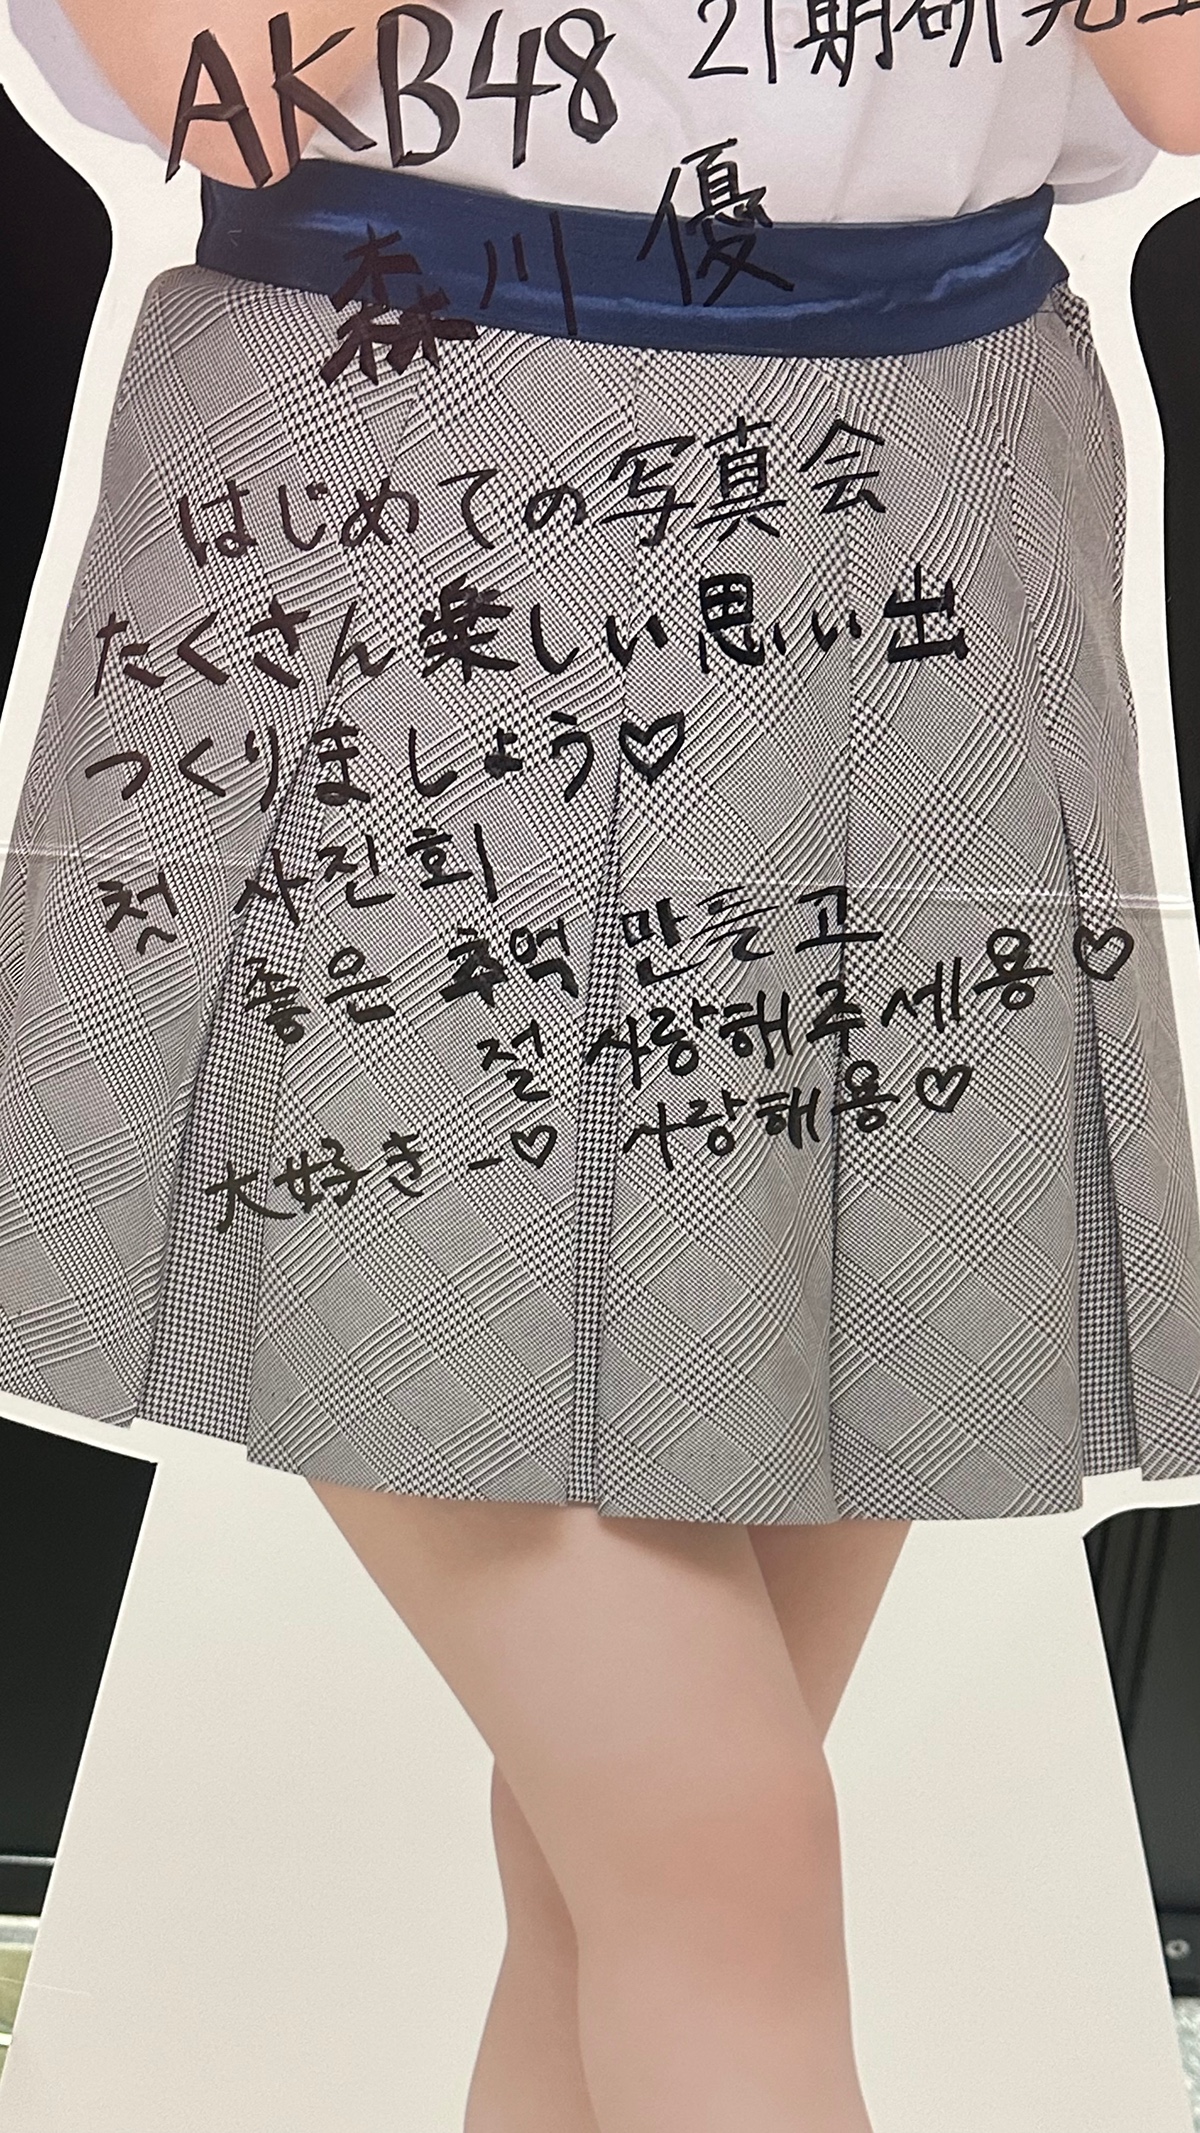 AKB48 21期研究生
森川 優
はじめての写真会
たくさん楽しい思い出
つくりましょう♡
첫 사진회
좋은 추억 만들고
절 사랑해주세용♡
大好きー♡ 사랑해용♡